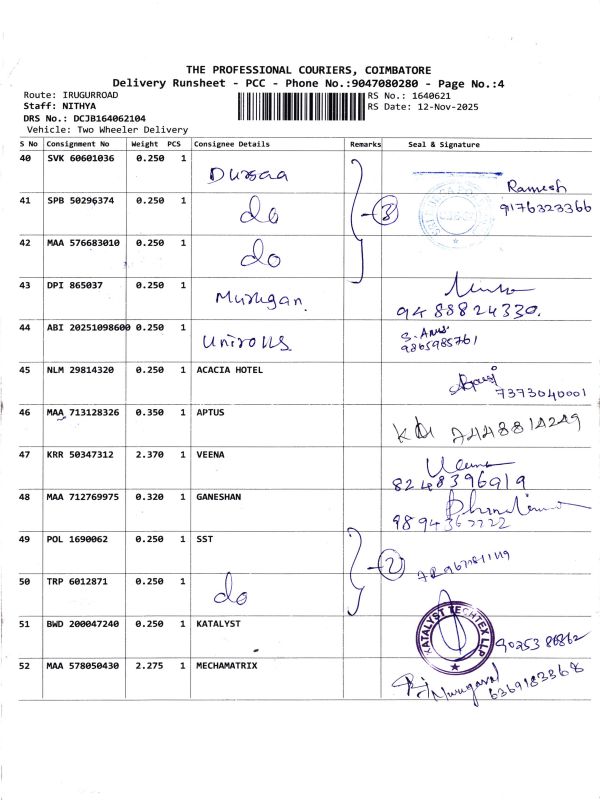 THE PROFESSIONAL COURIERS, COIMBATORE
Delivery Runsheet - PCC - Phone No.:9047080280 - Page No.:4
Route: IRUGURROAD RS No.: 1640621
Staff: NITHYA RS Date: 12-Nov-2025
DRS No.: DCJB164062104
Vehicle: Two Wheeler Delivery
S No Consignment No Weight PCS Consignee Details Remarks Seal & Signature
40 SVK 60601036 0.250 1 Durgaa Ramesh
41 SPB 50296374 0.250 1 do 3 9176323366
42 MAA 576683010 0.250 1 do
43 DPI 865037 0.250 1 Murugan 9488824330.
44 ABI 20251098600 0.250 1 9865985761
45 NLM 29814320 0.250 1 ACACIA HOTEL 7373040001
46 MAA 713128326 0.350 1 APTUS
47 KRR 50347312 2.370 1 VEENA 8248396919
48 MAA 712769975 0.320 1 GANESHAN 9894367722
49 POL 1690062 0.250 1 SST 2
50 TRP 6012871 0.250 1 do
51 BWD 200047240 0.250 1 KATALYST KATALYST TECHTEX LLP
52 MAA 578050430 2.275 1 MECHAMATRIX 6369183368